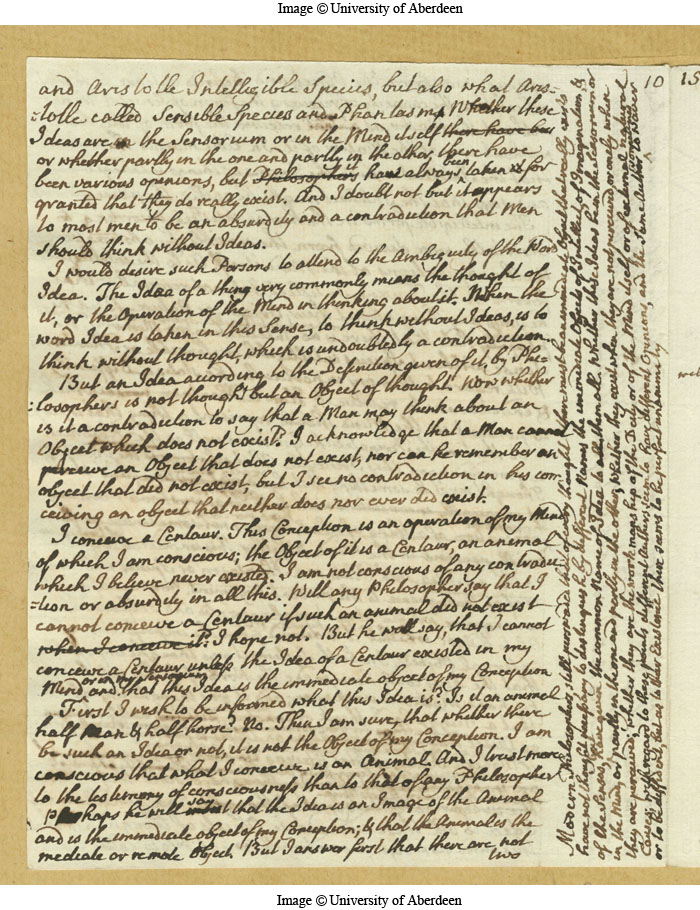 Image © University of Aberdeen
10
15
and Aristotle Intelligible Species, but also what Aris-
-totle called Sensible Species and Phantasms. Whether these
Ideas are in the Sensorium or in the Mind itself there have been
or whether partly in the one and partly in the other, there have
been various opinions, but Philosophers have always been taken it for
granted that they do really exist. And I doubt not but it appears
to most men to be an absurdity and a contradiction that Men
should think without Ideas.
I would desire such Persons to attend to the Ambiguity of the Word
Idea. The Idea of a thing very commonly means the thought of
it, or the Operation of the Mind in thinking about it. When the
word Idea is taken in this Sense, to think without Ideas, is to
think without thought, which is undoubtedly a contradiction.
But an Idea according to the Definition given of it by Phi-
-losophers is not thought but an Object of thought. Now whether
is it a contradiction to say that a Man may think about an
Object which does not exist? I acknowledge that a Man cannot
perceive an Object that does not exist, nor can he remember an
object that did not exist, but I see no contradiction in his con-
ceiving an object that neither does nor ever did exist.
I conceive a Centaur. This Conception is an operation of my Mind
of which I am conscious; the Object of it is a Centaur, an animal
which I believe never existed. I am not conscious of any contradic-
-tion or absurdity in all this. Will any Philosopher say that I
cannot conceive a Centaur if such an animal did not exist
when I conceive it? I hope not. But he will say, that I cannot
conceive a Centaur unless the Idea of a Centaur existed in my
Mind or in my sensorium and that this Idea is the immediate object of my Conception
First I wish to be informed what this Idea is? Is it an animal
half Man & half horse? No. Thus I am sure, that whether there
be such an Idea or not, it is not the Object of my Conception. I am
conscious that what I conceive is an Animal. And I trust more
to the testimony of consciousness than to that of any Philosopher
Perhaps he will say that the Idea is an Image of the Animal
and is the immediate object of my Conception; & that the Animal is the
mediate or remote Object. But I answer first that there are not
two
Modern Philosophers still persuaded that of every thought there must be an immediate Object that really exists
have not thought necessary to distinguish by different Names the immediate Objects of Intellect, of Imagination, &
of the Senses, but have given the common Name of Idea to them all. Whether these Ideas be in the Sensorium or
in the Mind, or partly in the one and partly in the other; whether they exist when they are not perceived or only when
they are perceived; whether they are the workmanship of the Deity or of the Mind itself, or of external natural
Causes; with regard to these points different Authors seem to have different Opinions, and the same Author to waver
or to be diffident; but as to their Existence there seems to be perfect unanimity
Image © University of Aberdeen